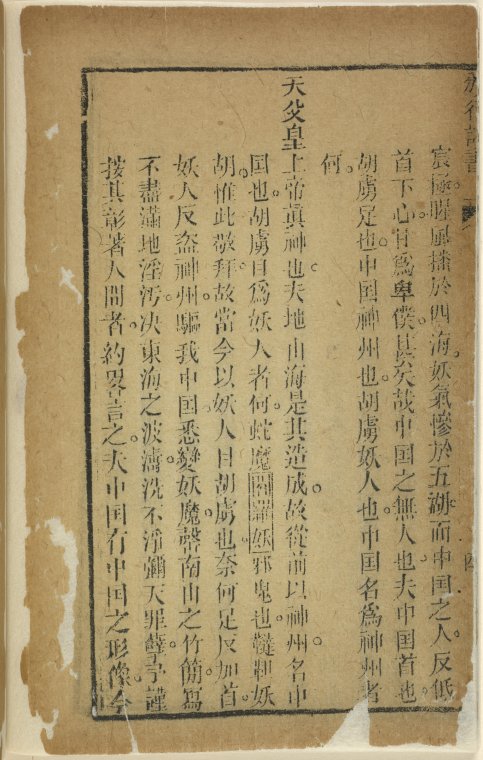 頒行詔書 四
宸極。腥風播於四海。妖氣慘於五湖。而中国之人。反低
首下心。甘為卑僕。甚矣哉。中国之無人也。夫中国首也。
胡虜足也。中国神州也。胡虜妖人也。中国名為神州者
何。
天父皇上帝真神也。天地山海是其造成。故從前以神州名中
国也。胡虜目為妖人者何。蛇魔閻羅妖邪鬼也。韃靼妖
胡。惟此敬拜。故當今以妖人目胡虜也。奈何足反加首。
妖人反盜神州。驅我中国悉變妖魔。罄南山之竹簡。寫
不盡滿地淫污。決東海之波濤。洗不淨彌天罪孽。予謹
按其彰著人間者。約畧言之。夫中国有中国之形像。今